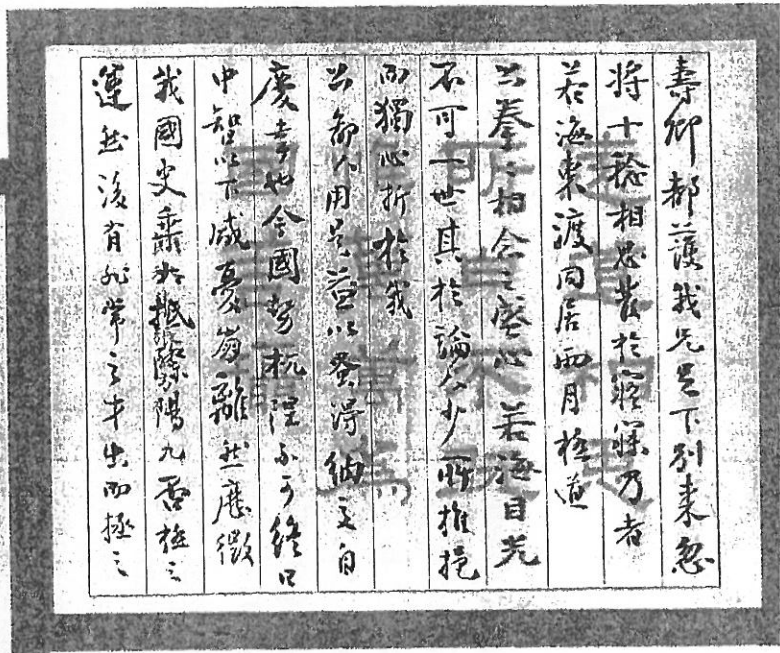 壽卿都護我兄足下別來忽
將十稔相思發於寤寐乃者
若海東渡同居兩月極道
公拳〻相念之盛心若海目光
不可一世其於論人少所推挹
而獨心折於我
公鄙人用是益以得納交自
慶幸也今國勢杌隉不可終日
中智以下咸憂崩離然歷徵
我國史乘陽九否極之
運然後有非常之才出而拯之